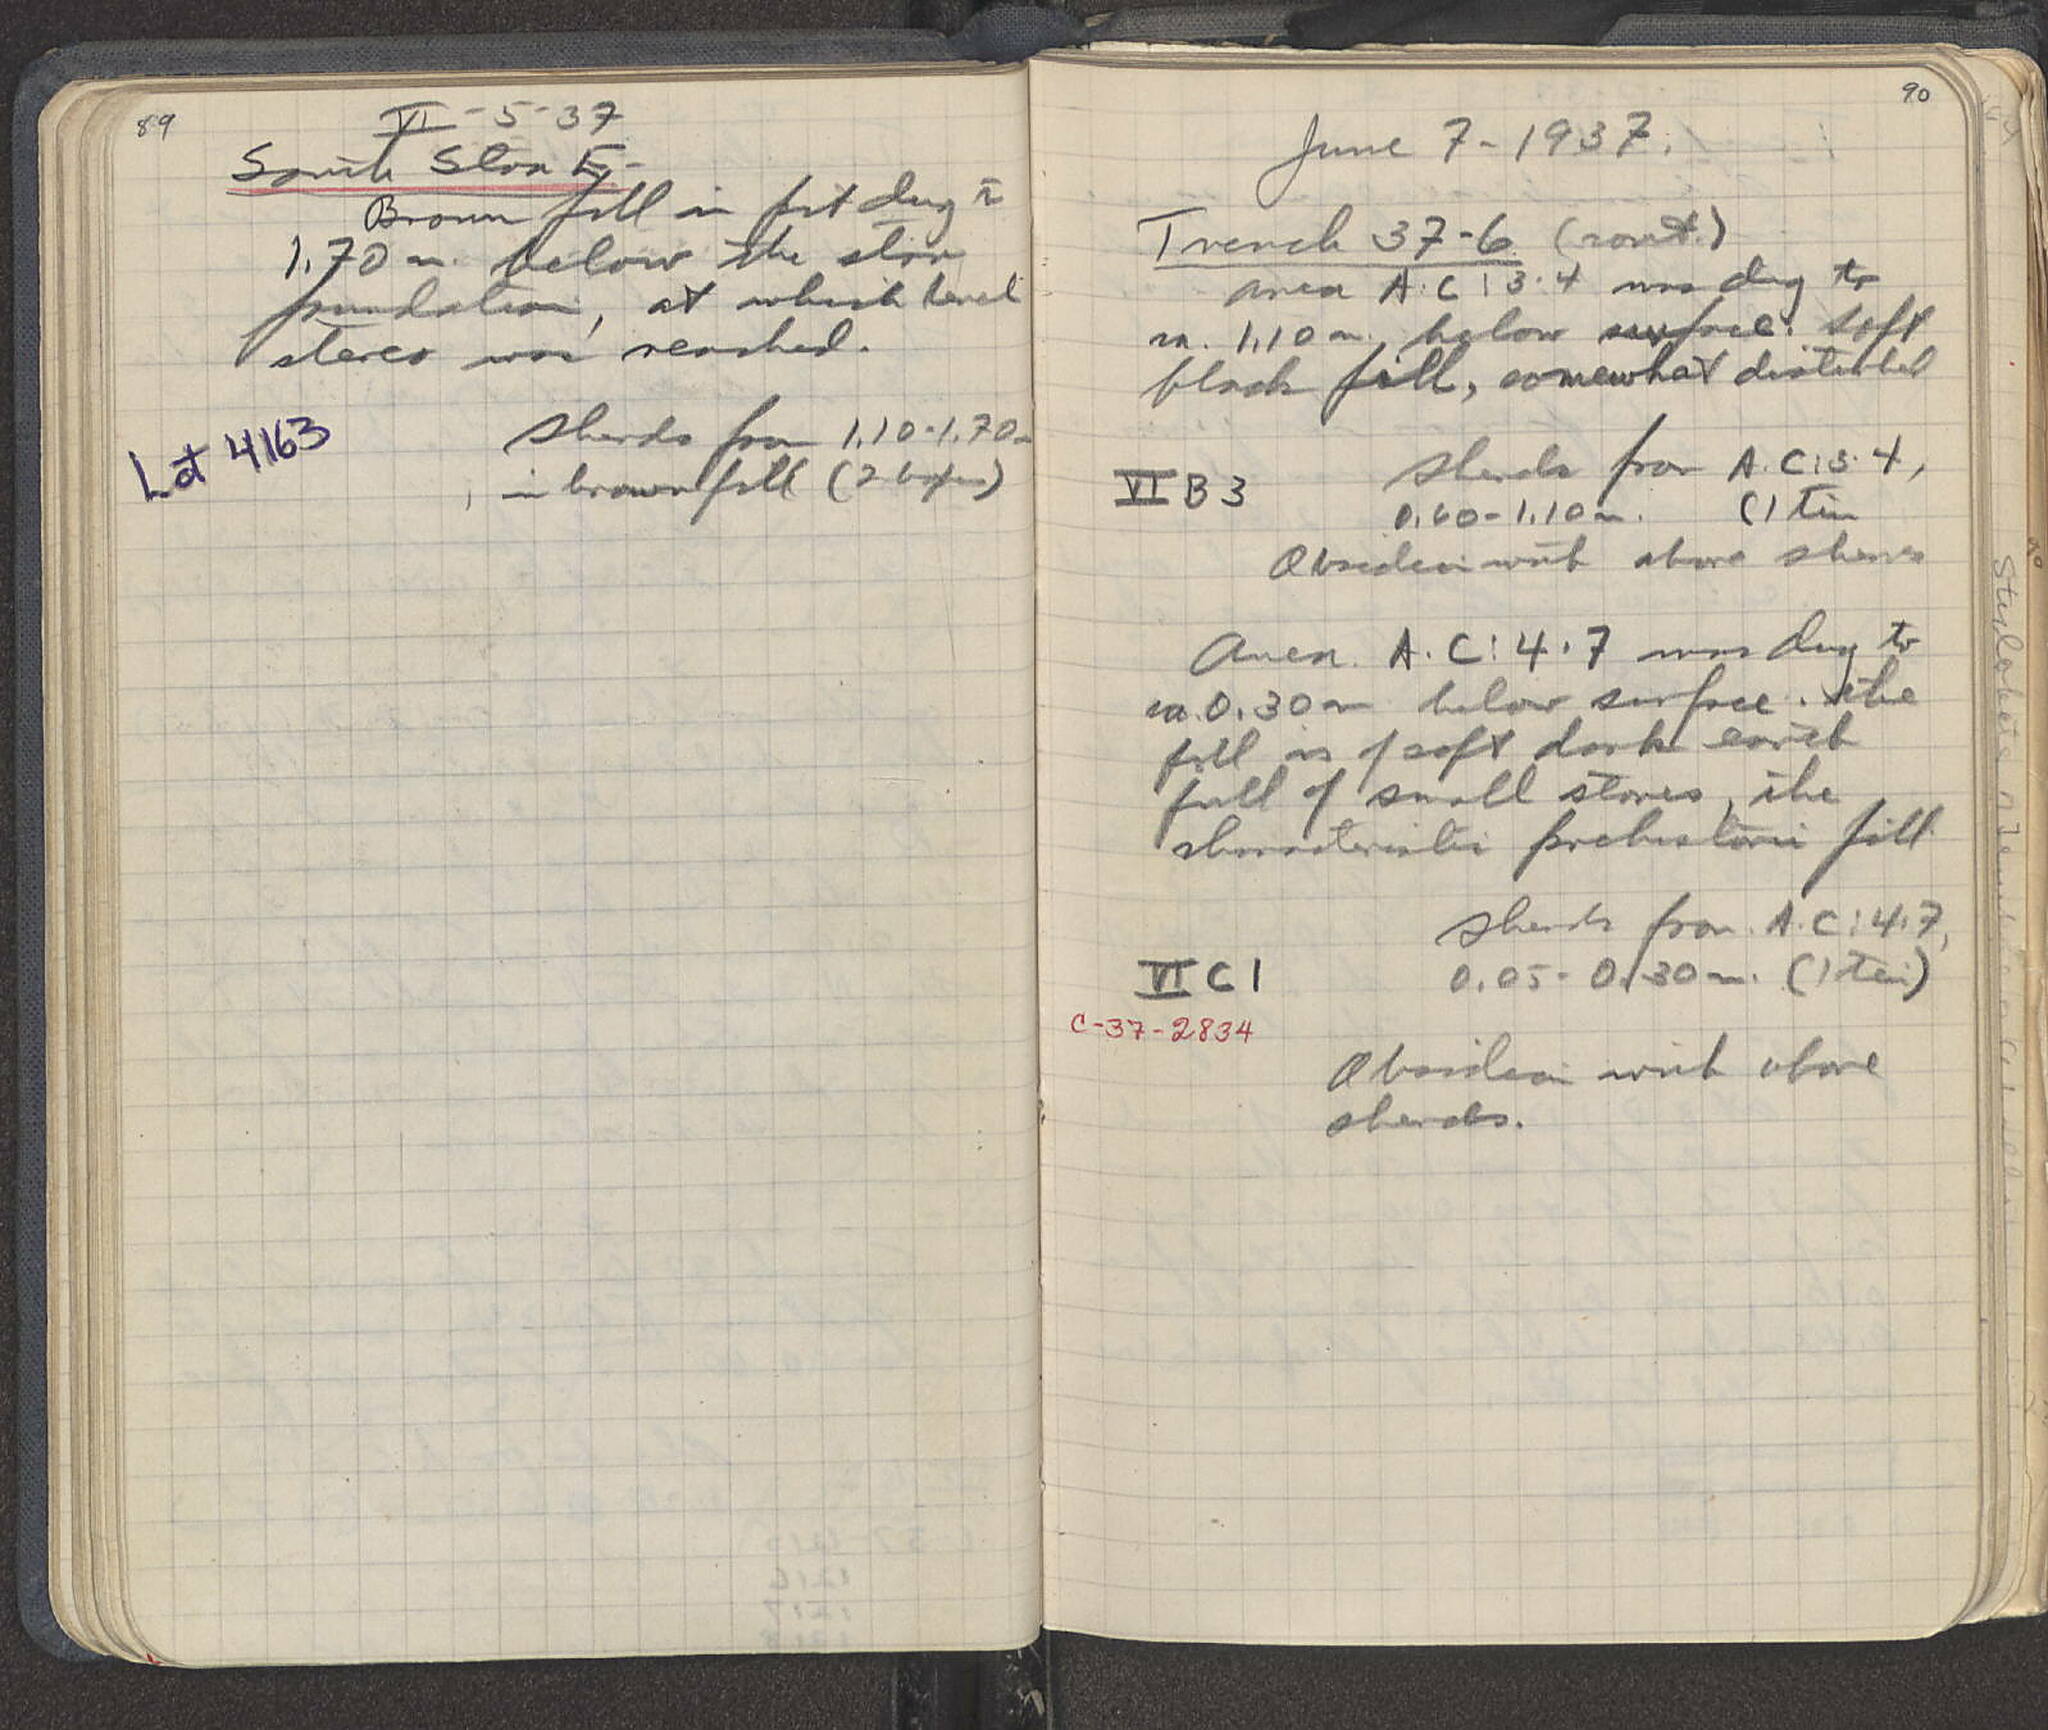 89
VI-5-37
South Stoa E-
Brown fill in pit dug to
1.70 m. below the stoa
foundation, at which level
stereo was reached.
Lot 4163
Sherds from 1.10-1.70m
in brown fill (2 boxes)
90
June 7-1937.
Trench 37-6 (cont.)
area A-C:3-4 was dug to
ca. 1.10 m. below surface. Soft
black fill, somewhat disturbed
VI B 3
Sherds from A-C:3-4,
0.60-1.10 m. (1 tin
Obsidian with above sherds
Area A-C:4-7 was dug to
ca. 0.30 m below surface. The
fill is of soft dark earth
full of small stones, the
characteristic prehistoric fill
Sherds from A-C:4-7,
VI C 1
0.05-0.30 m. (1 tin)
C-37-2834
Obsidian with above
sherds.